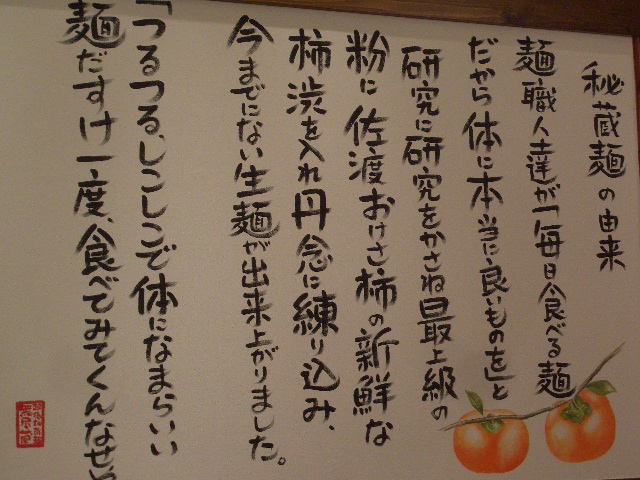 秘蔵麺の由来
麺職人達が「毎日食べる麺
だから体に本当に良いものを」と
研究に研究をかさね最上級の
粉に佐渡おけさ柿の新鮮な
柿渋を入れ丹念に練り込み、
今までにない生麺が出来上がりました。
「つるつる、しこしこで体になまらいい
麺だすけ一度、食べてみてくんなせい